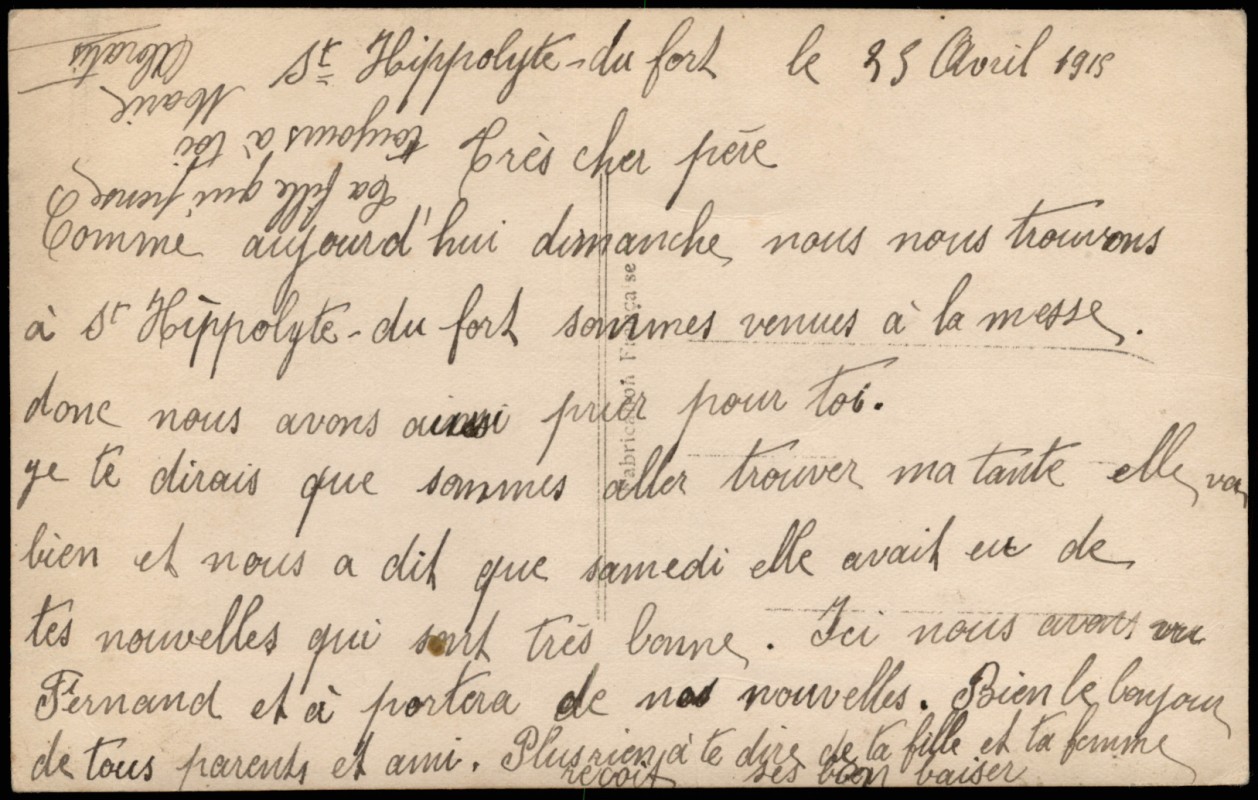 St Hippolyte-du fort le 25 Avril 1915
Très cher père
Comme aujourd'hui dimanche nous nous trouvons
à St Hippolyte-du fort sommes venues à la messe.
donc nous avons ainsi prier pour toi.
ye te dirais que sommes aller trouver ma tante elle va
bien et nous a dit que samedi elle avait eu de
tes nouvelles qui sont très bonne. Ici nous avons vu
Fernand et à portera de nos nouvelles. Bien le bonjour
de tous parents et ami. Plus rien à te dire de ta fille et ta femme
reçoit ses bien baiser
Ta fille qui pense
toujours à toi
Marie
Fabrication Française